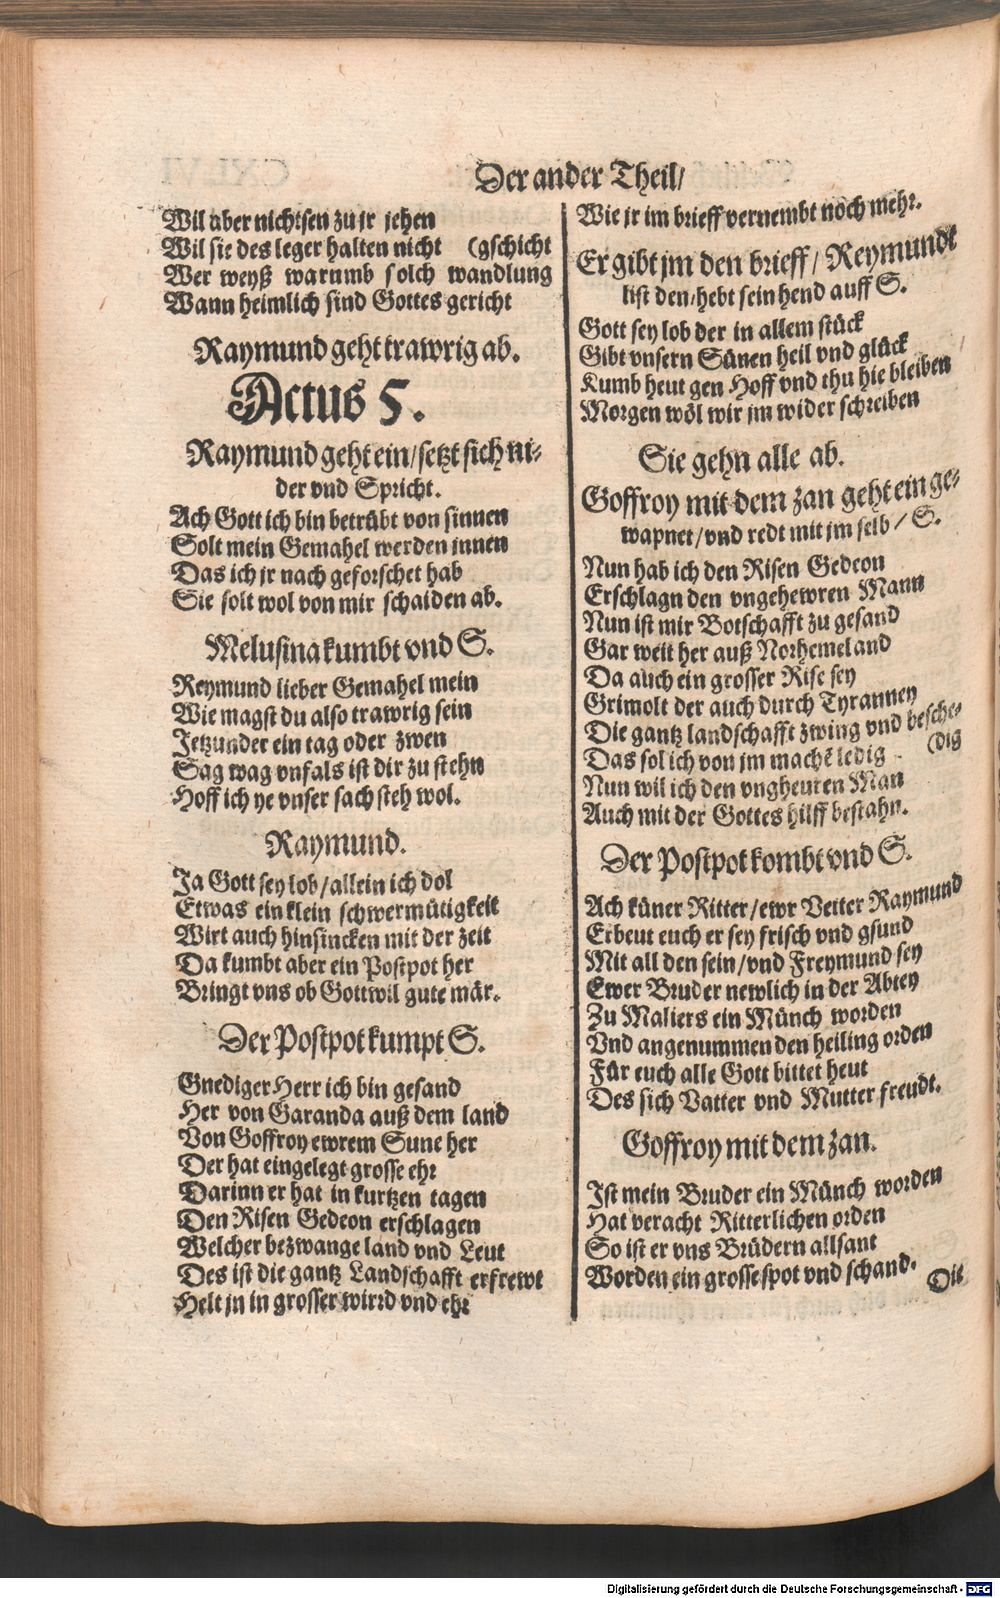 Der ander Theil/
Wil aber nichtsen zu jr jehen
Wil sie des leger halten nicht (gschicht
Wer weyß warumb solch wandlung
Wann heimlich sind Gottes gericht
Raymund geht trawrig ab.
Actus 5.
Raymund geht ein/setzt sich ni-
der vnd Spricht.
Ach Gott ich bin betrübt von sinnen
Solt mein Gemahel werden jnnen
Das ich jr nach geforschet hab
Sie solt wol von mir schaiden ab.
Melusina kumbt vnd S.
Reymund lieber Gemahel mein
Wie magst du also trawrig sein
Jetzunder ein tag oder zwen
Sag wag vnfals ist dir zu stehn
Hoff ich ye vnser sach steh wol.
Raymund.
Ja Gott sey lob/allein ich dol
Etwas ein klein schwermütigkeit
Wirt auch hinsincken mit der zeit
Da kumbt aber ein Postpot her
Bringt vns ob Gott wil gute mär.
Der Postpot kumpt S.
Gnediger Herr ich bin gesand
Her von Garanda auß dem land
Von Goffroy ewrem Sune her
Der hat eingelegt grosse ehr
Darinn er hat in kurtzen tagen
Den Risen Gedeon erschlagen
Welcher bezwange land vnd Leut
Des ist die gantz Landschafft erfrewt
Helt jn in grosser wirrd vnd ehr
Wie jr im brieff vernembt noch mehr.
Er gibt jm den brieff/ Reymundt
list den/hebt sein hend auff S.
Gott sey lob der in allem stück
Gibt vnsern Sünen heil vnd glück
Kumb heut gen Hoff vnd thu hie bleiben
Morgen wöl wir jm wider schreiben
Sie gehn alle ab.
Goffroy mit dem zan geht ein ge-
wapnet/vnd redt mit jm selb/ S.
Nun hab ich den Risen Gedeon
Erschlagn den vngehewren Mann
Nun ist mir Botschafft zu gesand
Gar weit her auß Norhemeland
Da auch ein grosser Rise sey
Grimolt der auch durch Tyranney
Die gantz landschafft zwing vnd besche-
Das sol ich von jm machē ledig (dig
Nun wil ich den vngheuren Man
Auch mit der Gottes hilff bestahn.
Der Postpot kombt vnd S.
Ach küner Ritter/ewr Vetter Raymund
Erbeut euch er sey frisch vnd gsund
Mit all den sein/vnd Freymund sey
Ewer Bruder newlich in der Abtey
Zu Maliers ein Münch worden
Vnd angenummen den heiling orden
Für euch alle Gott bittet heut
Des sich Vatter vnd Mutter freudt.
Goffroy mit dem zan.
Ist mein Bruder ein Münch worden
Hat veracht Ritterlichen orden
So ist er vns Brüdern allsant
Worden ein grosse spot vnd schand.
Dit
Digitalisierung gefördert durch die Deutsche Forschungsgemeinschaft - DFG